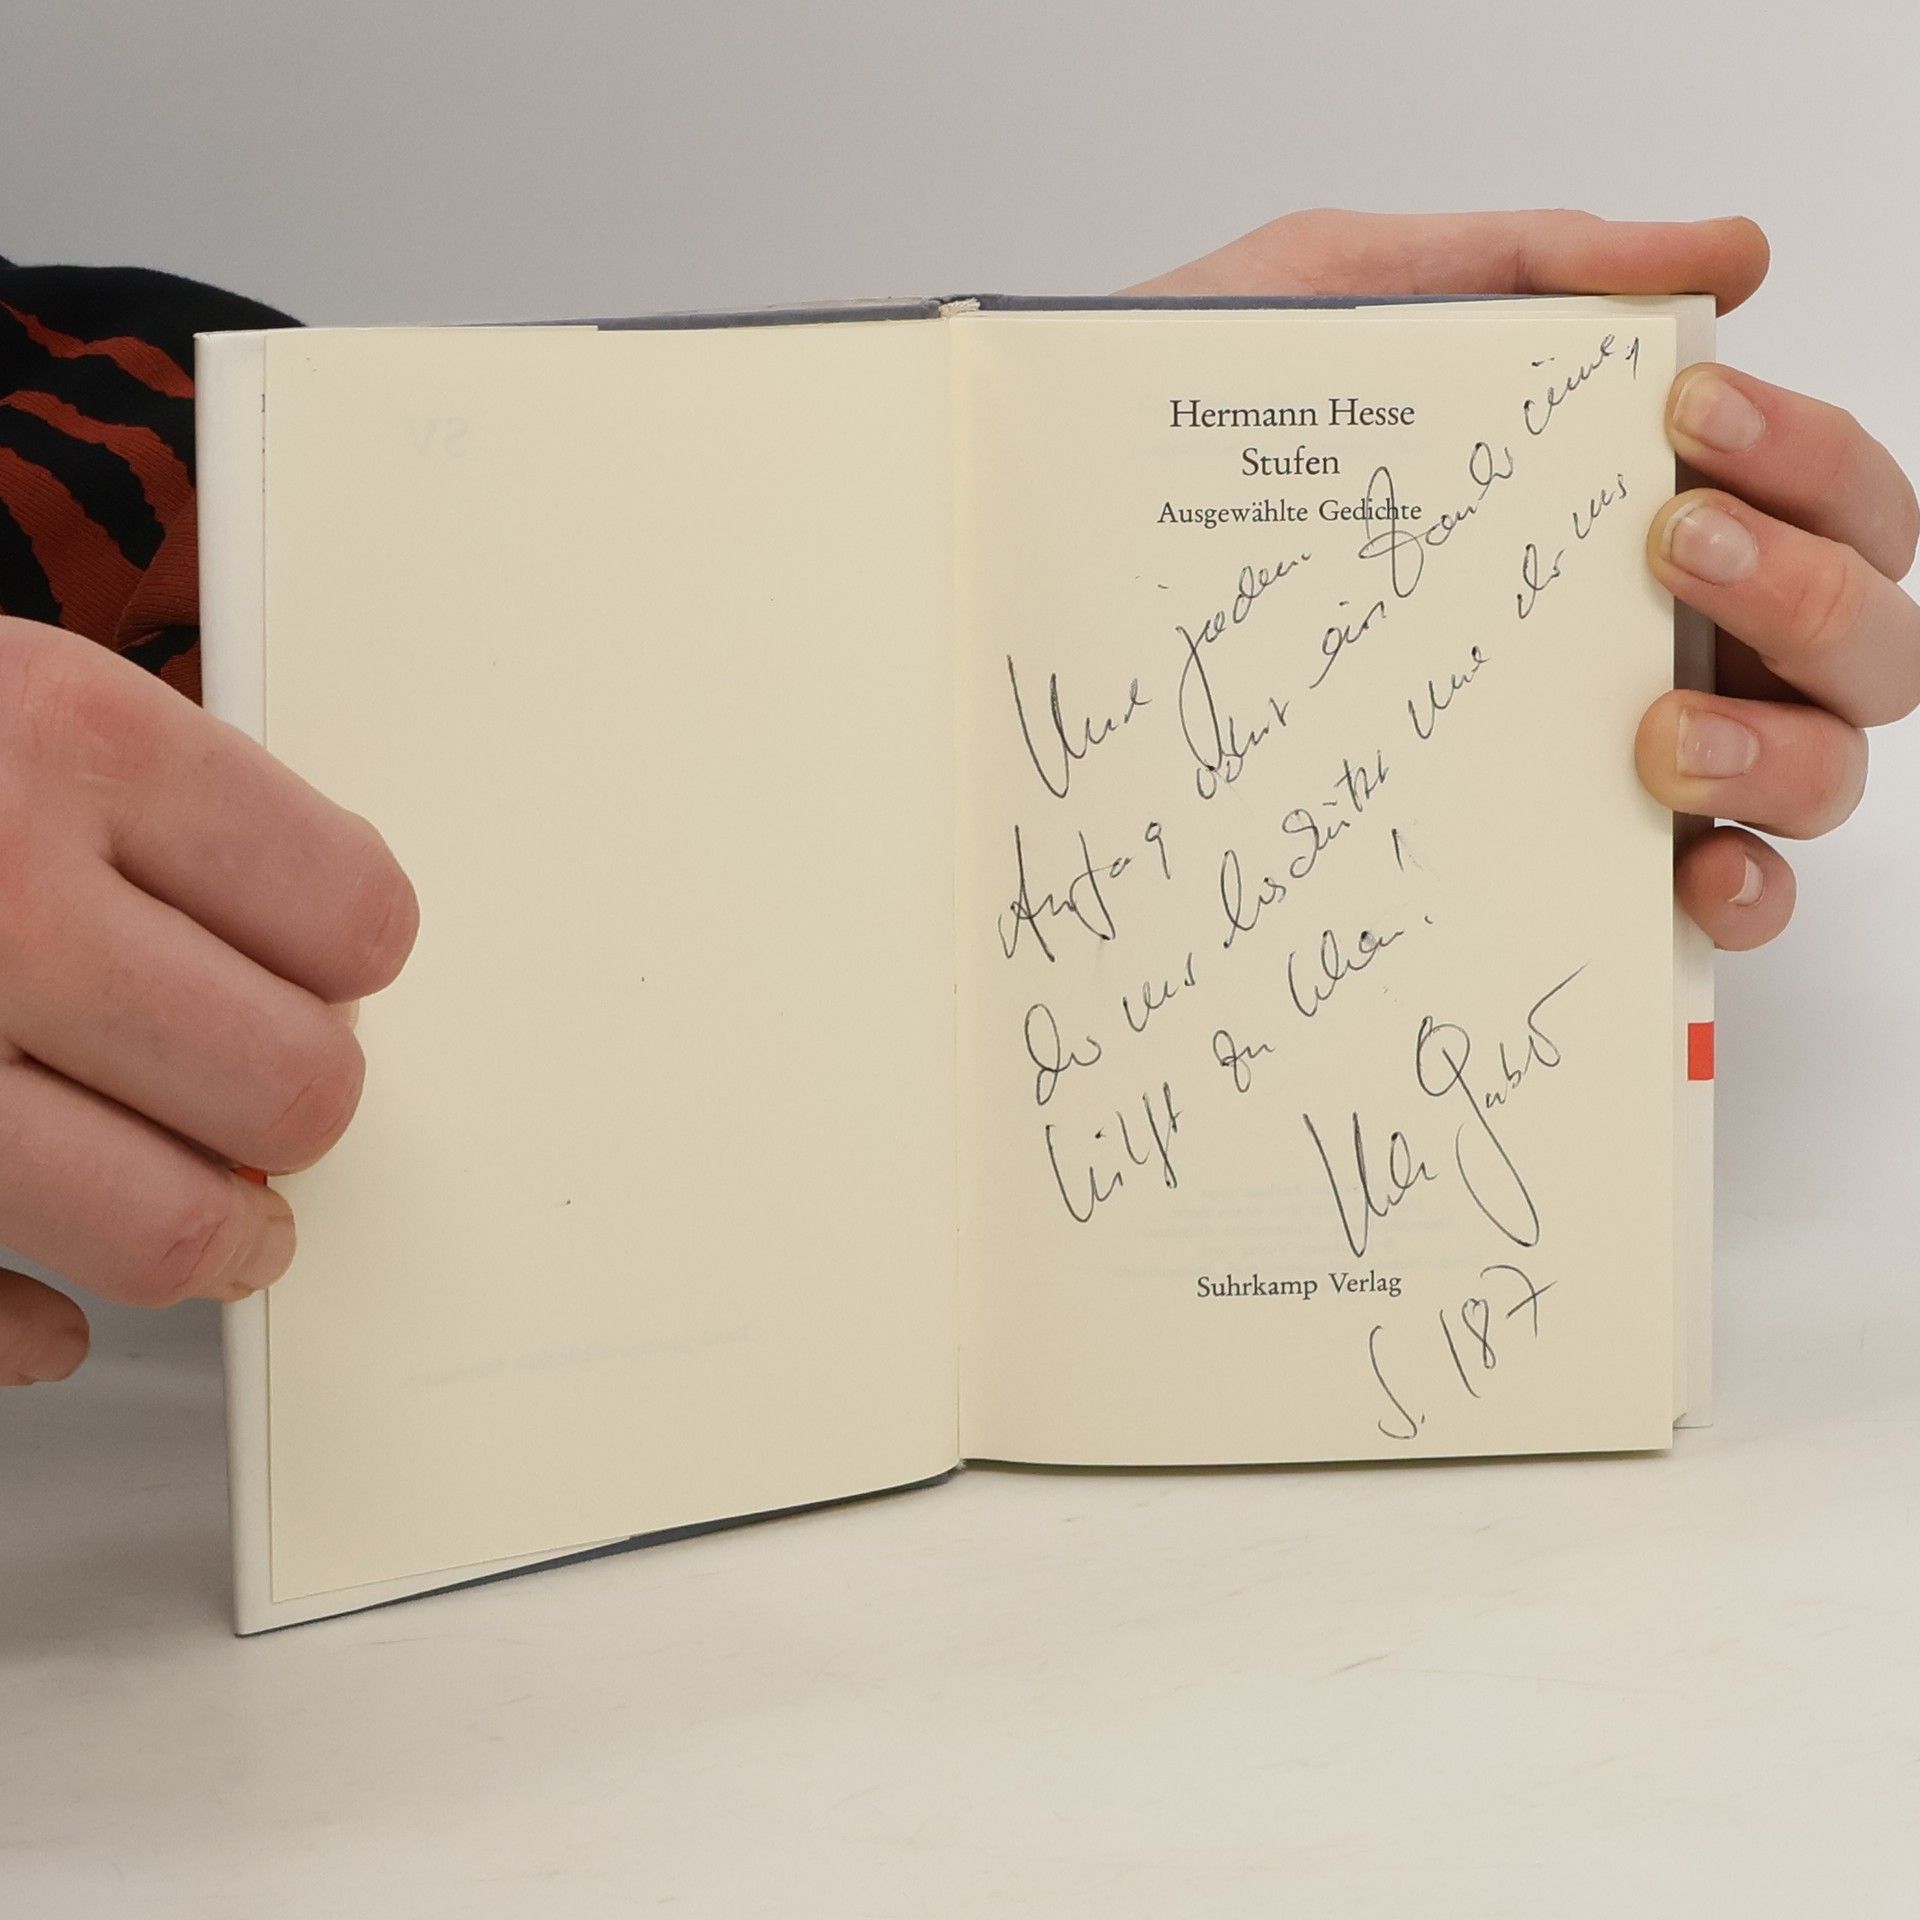 Hermann Hesse
Stufen
Ausgewählte Gedichte
Und jedem Zauber inne,
Anfang wohnt ein
der uns beschützt und der uns
hilft zu leben!
S. 187
Suhrkamp Verlag
SV